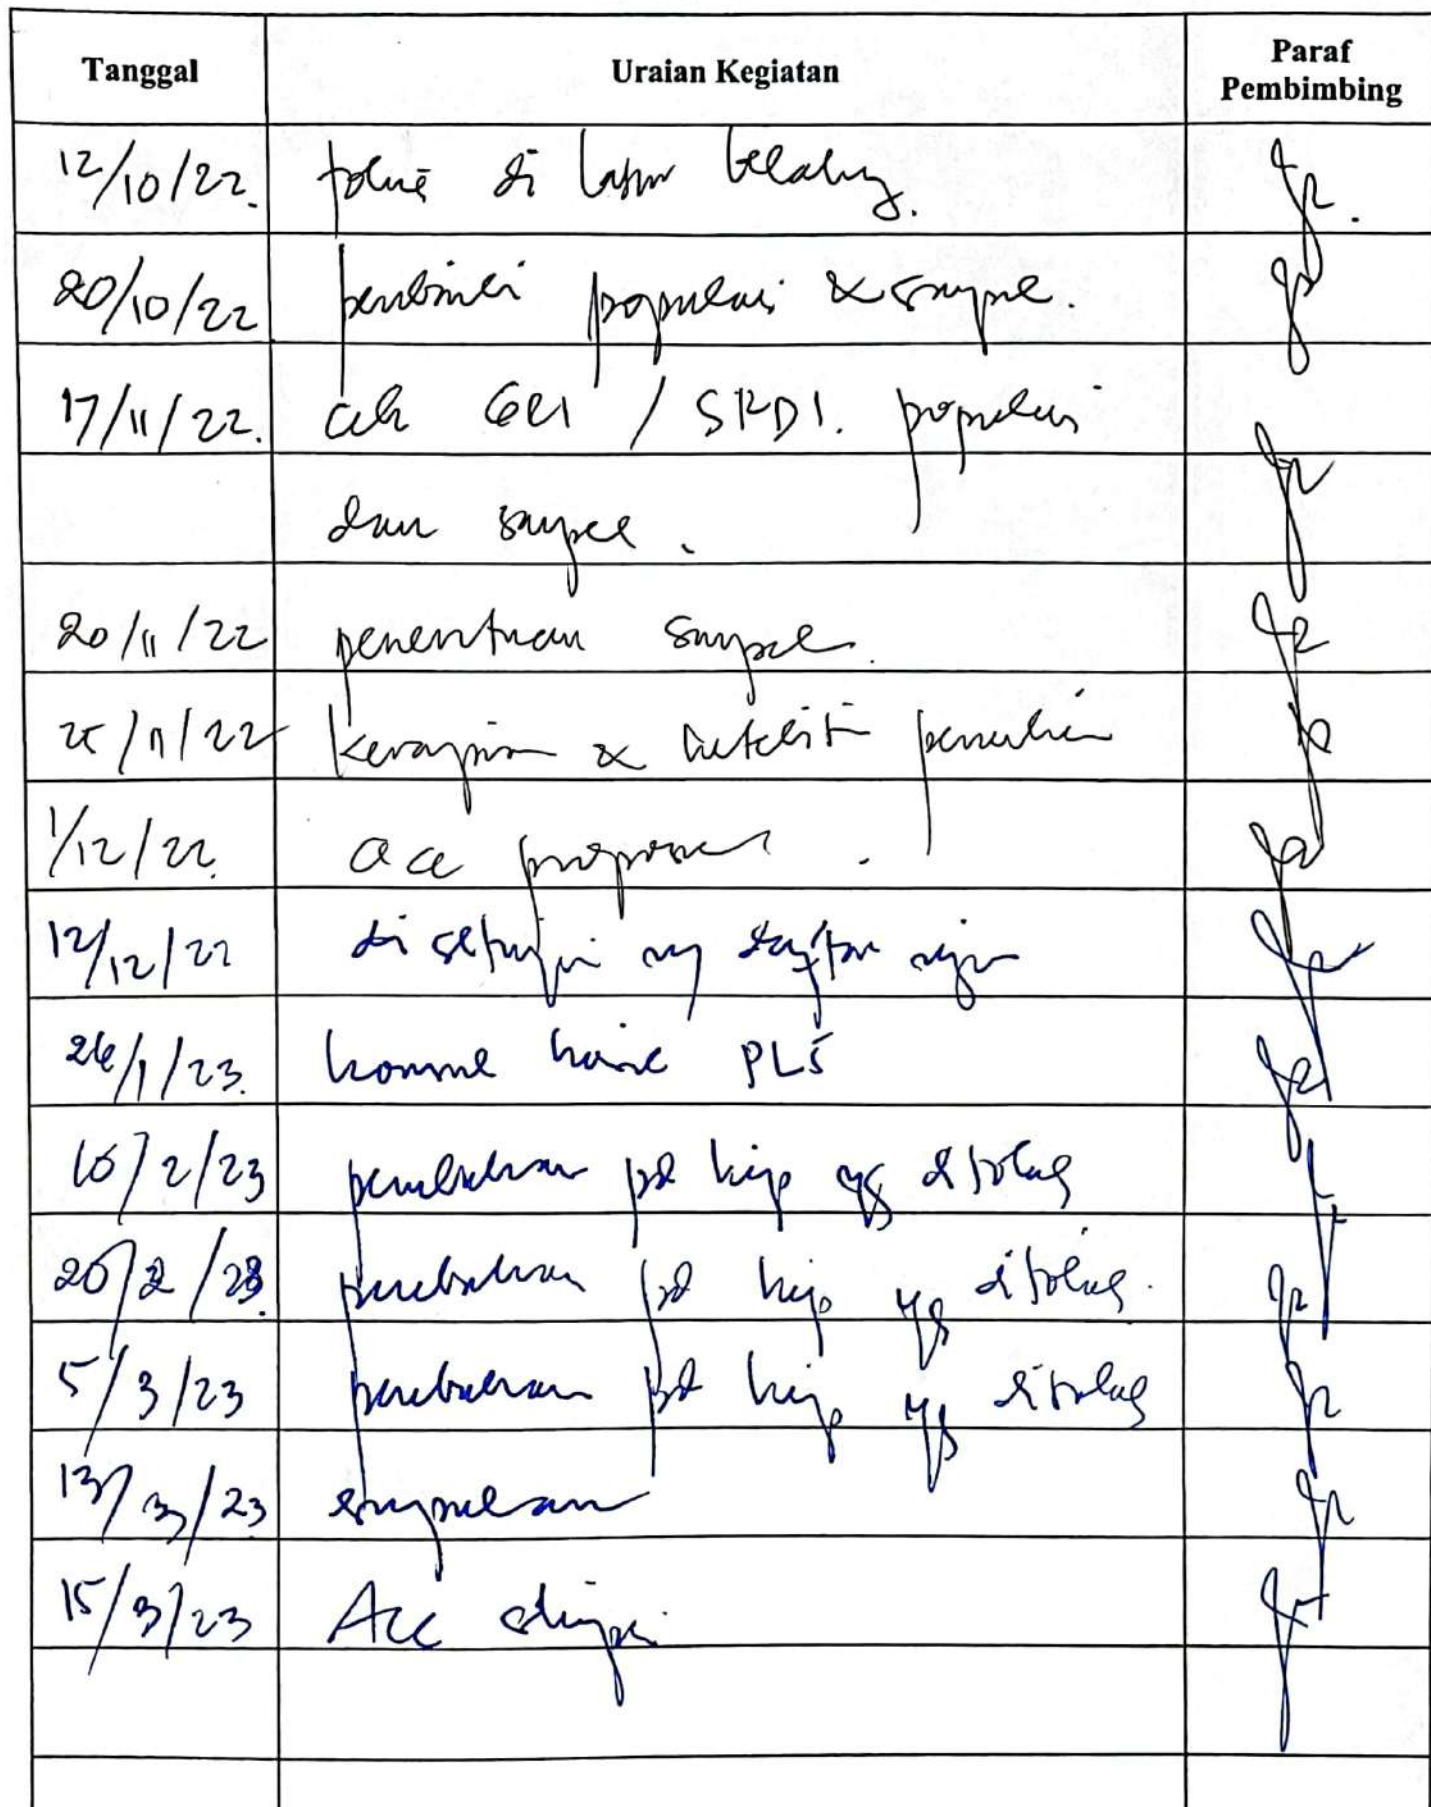 Tanggal Uraian Kegiatan Paraf Pembimbing
12/10/22. fokus di latar belakang.
20/10/22 populasi & sampel.
17/11/22. cek GRI / SRDI. populasi
dan sampel.
20/11/22 penentuan sampel.
25/11/22 kerapian & penulisan
1/12/22. acc proposal.
12/12/22 disetujui daftar ujian
26/1/23. hasil PLS
10/2/23 pembahasan pd hip yg ditolak
20/2/23. pembahasan pd hip yg ditolak.
5/3/23 pembahasan pd hip yg ditolak
13/3/23 simpulan
15/3/23 Acc skripsi